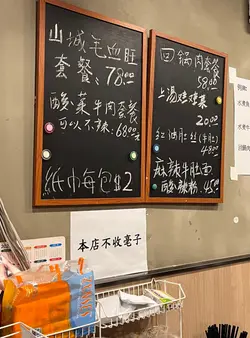 山城毛血旺
套餐、78.00
酸菜牛肉套餐
可以不辣:68.00元
紙巾每包$2
回鍋肉套餐
58.00
上湯
20.00
紅油肚丝(牛肚)
48.00
麻辣牛肚面
酸辣粉.45.00
本店不收毫子